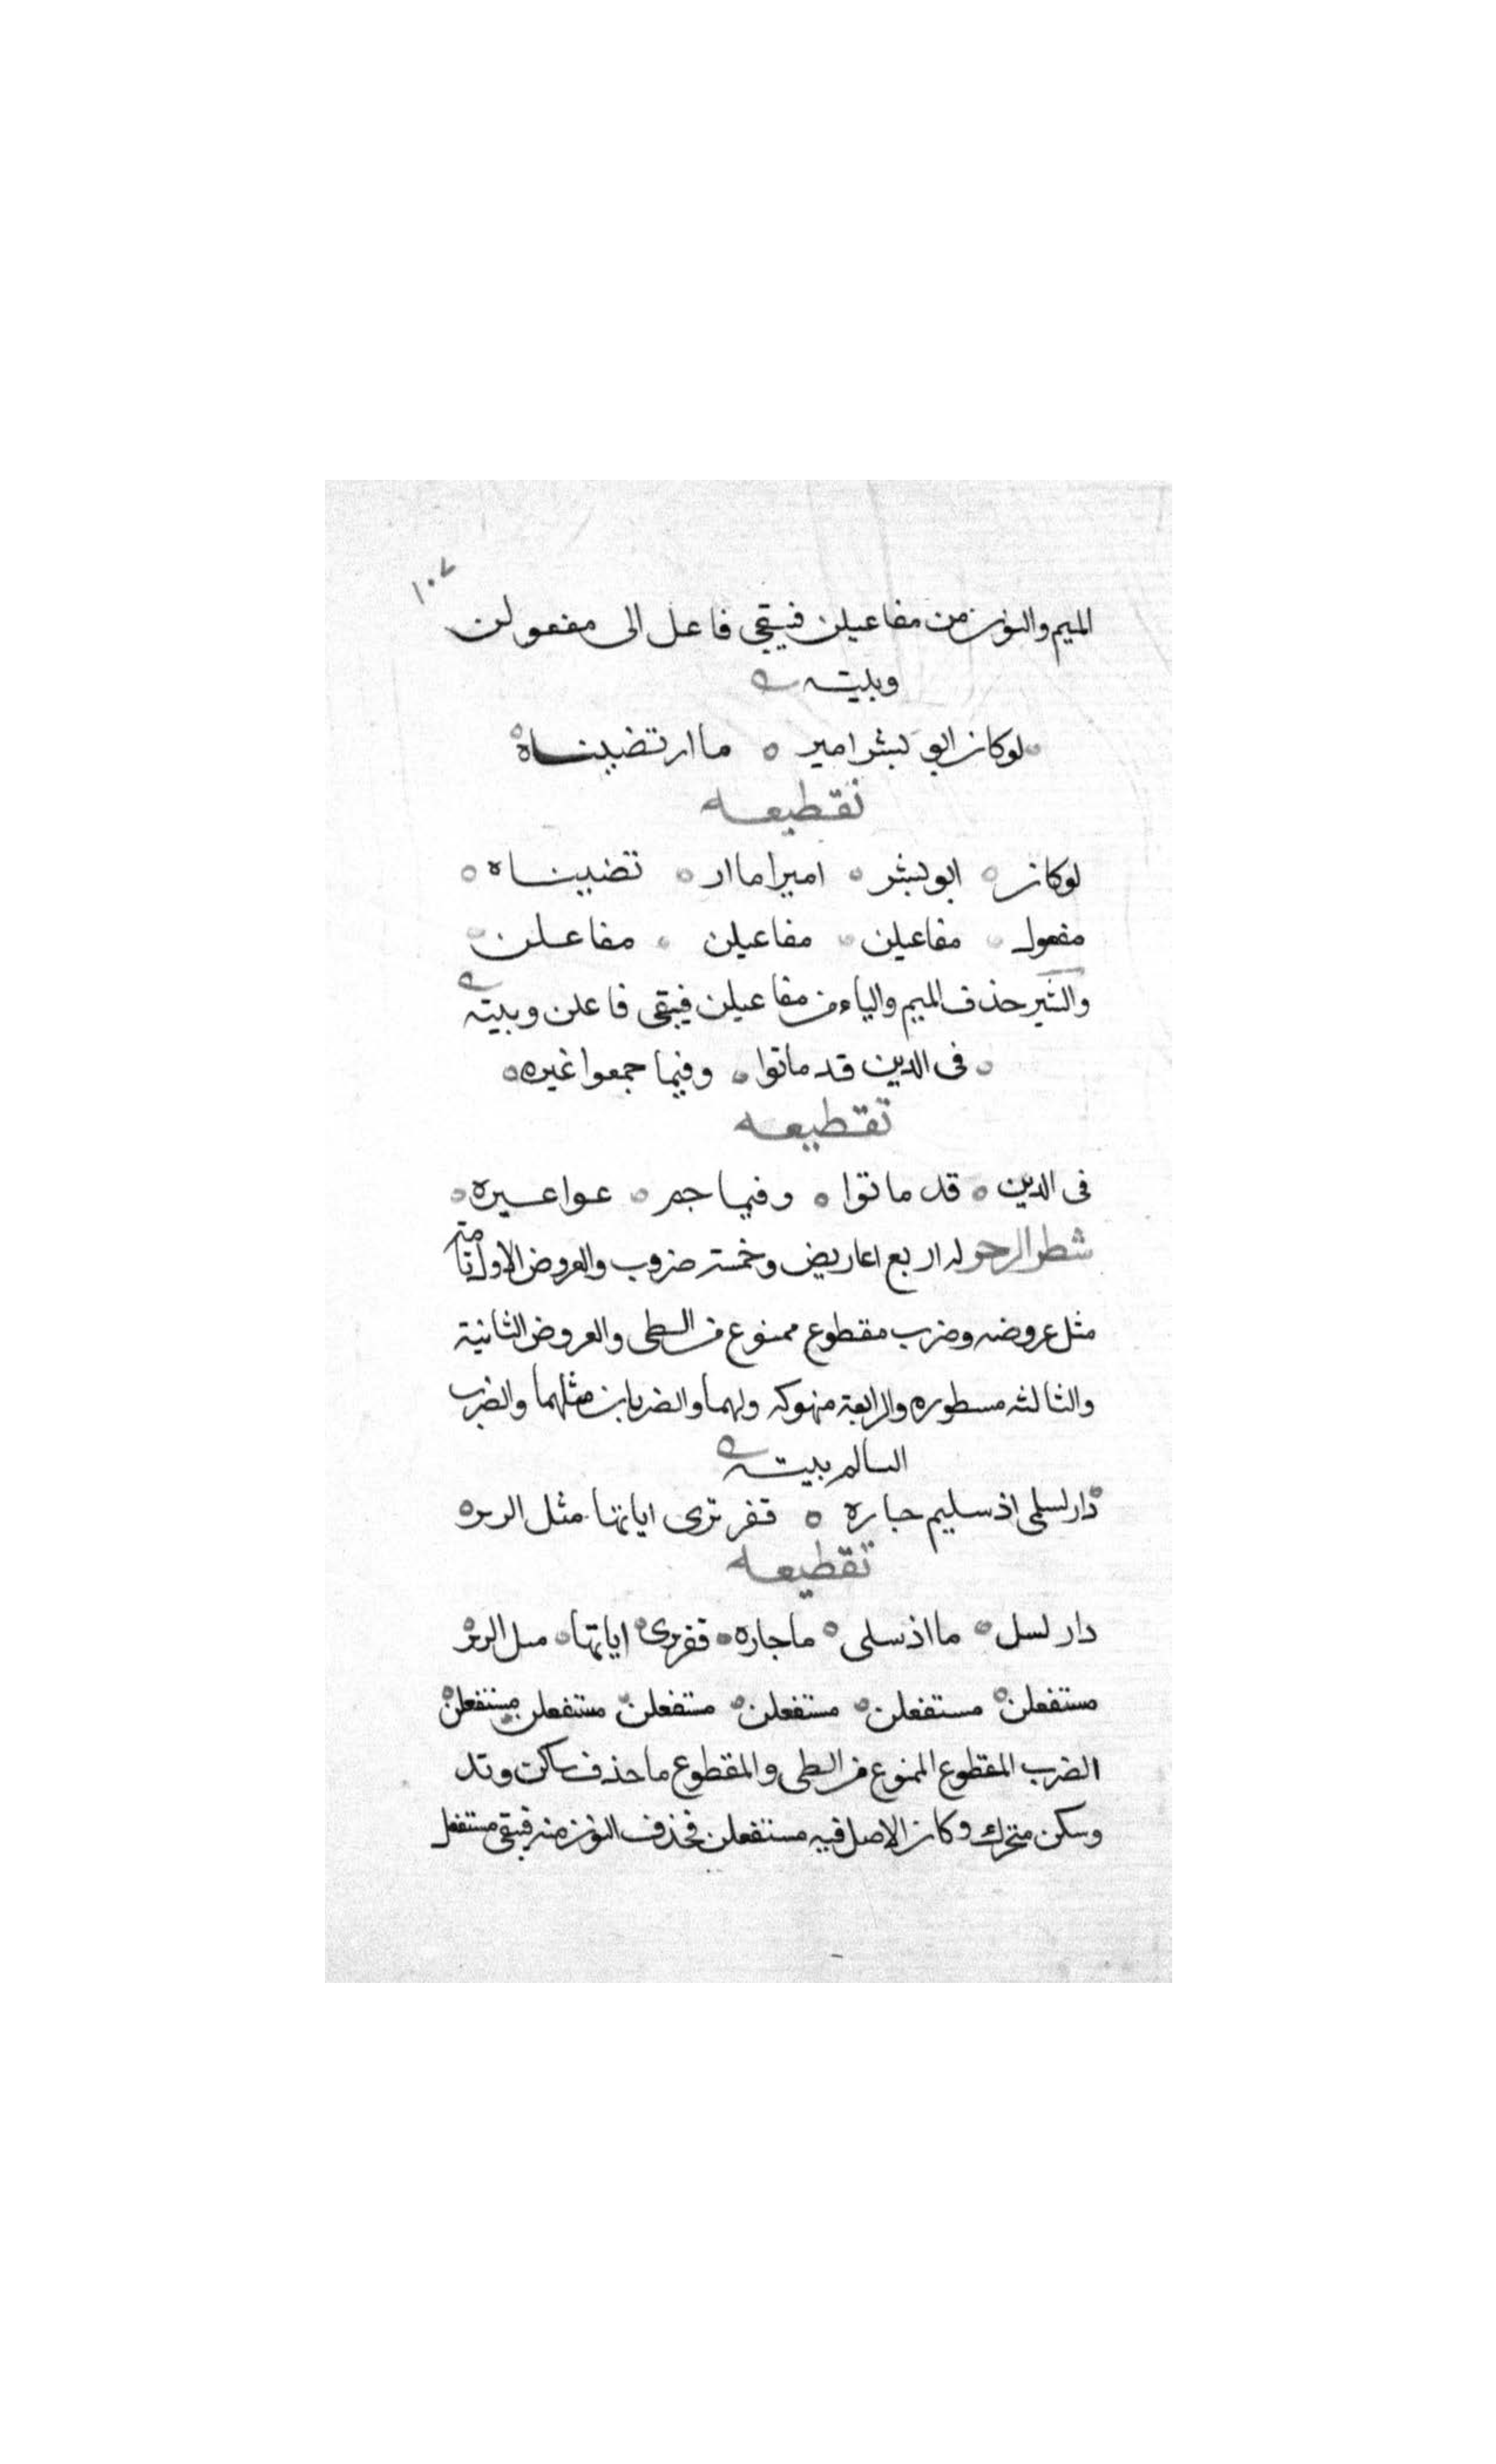 ١٠٧
الميم والنون من مفاعيلن فيبقى فاعيل الى مفعولن
وبيته
لو كان ابو بشر امير ما ارتضيناه
تقطيعه
لو كان ابو بشر اميرا ما ار تضيناه
مفعول مفاعيلن مفاعيلن مفاعلن
والشتر حذف الميم والياء من مفاعيلن فيبقى فاعلن وبيته
فى الدين قد ماتوا وفيما جمعوا غيره
تقطيعه
فى الدين قد ماتوا وفيما جم عوا عيره
شطر الرجز له اربع اعاريض وخمسة ضروب والعروض الاولى تامة
مثل عروضه وضرب مقطوع ممنوع من الطى والعروض الثانية
والثالثه مسطوره والرابعة منهوكه ولهما والضربان مثلهما والضرب
السالم بيته
دار لسلمى اذ سليم جاره قفر ترى اياتها مثل الربر
تقطيعه
دار لسل ما اذ سلى ما جاره قفر ترى اياتها مثل الربر
مستفعلن مستفعلن مستفعلن مستفعلن مستفعلن مستفعلن
الضرب المقطوع الممنوع من الطى والمقطوع ما حذف ساكن وتد
وسكن متحرك وكان الاصل فيه مستفعلن فحذف النون منه فيبقى مستفعل